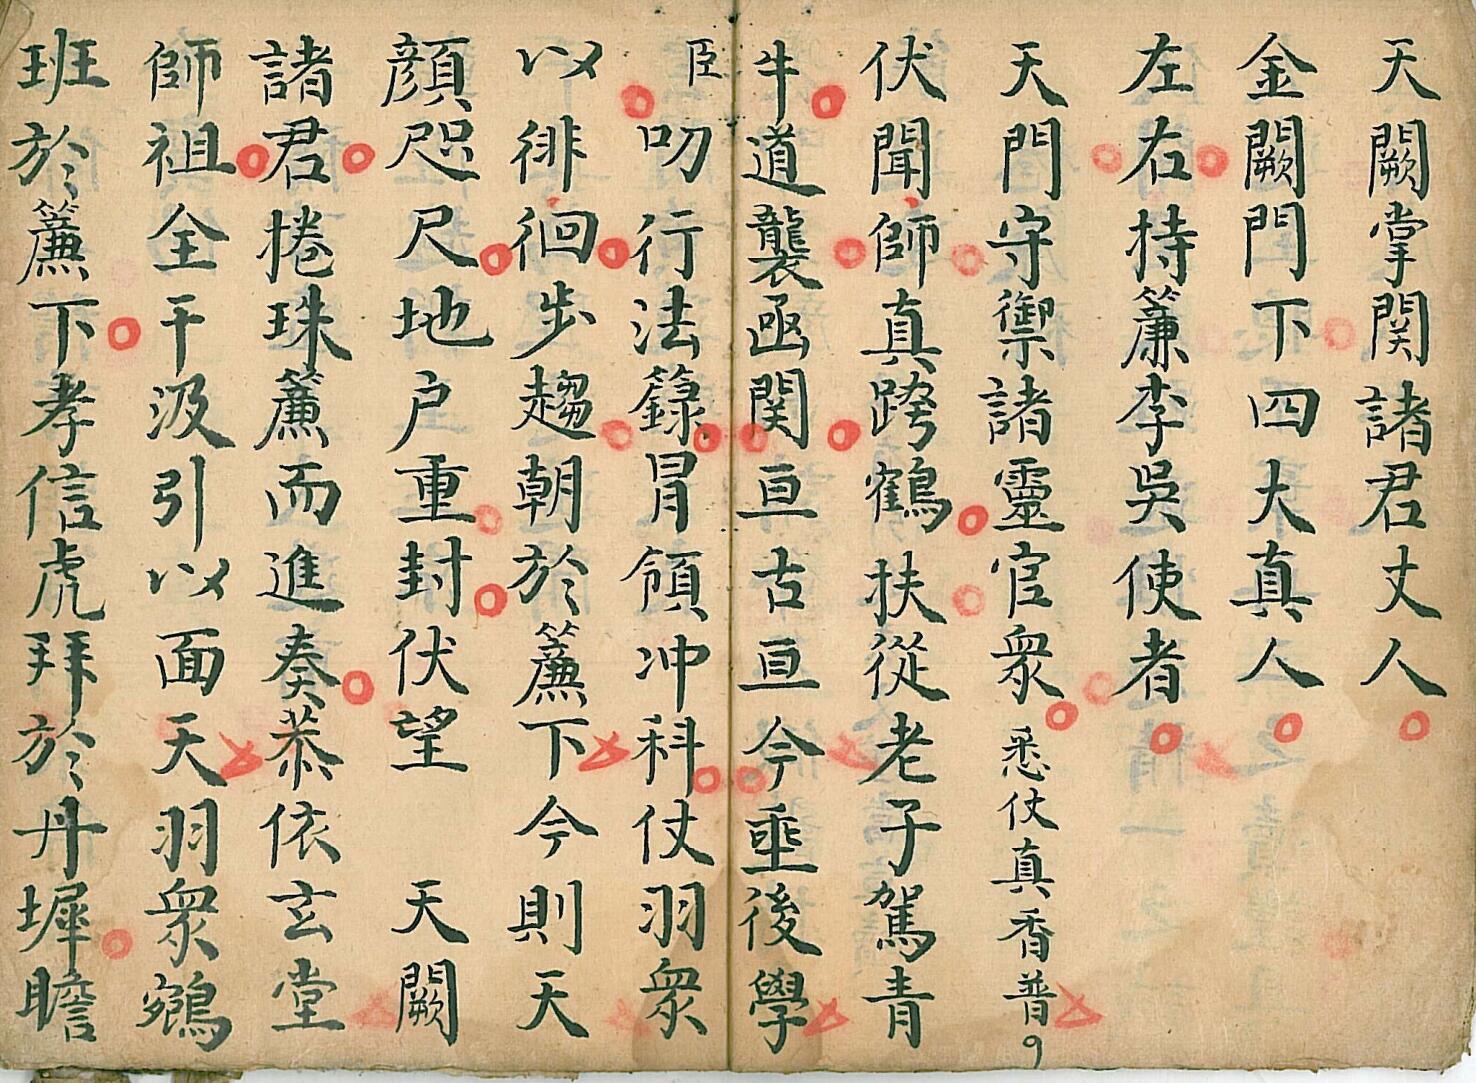 天闕掌関諸君丈人
金闕門下四大真人
左右持簾李吳使者
天門守禦諸靈官衆悉仗真香普
伏聞師真跨鶴扶從老子駕青
牛道襲函関亘古亘今垂後學
臣叨行法籙冒領冲科仗羽衆
以徘徊步趨朝於簾下今則天
顔咫尺地户重封伏望　天闕
諸君捲珠簾而進奏恭依玄堂
師祖全干汲引以面天羽衆鵷
班於簾下孝信虎拜於丹墀瞻